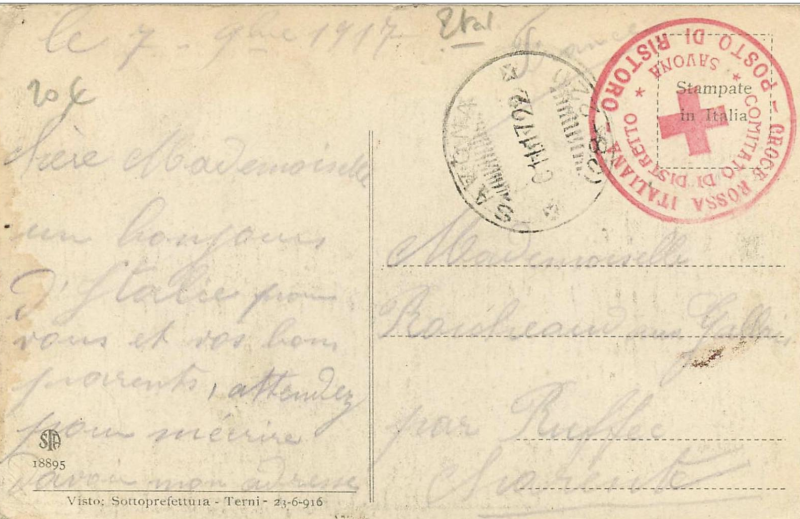 le 7 - 9bre 1917
20 €
France
Stampate
in Italia
CROCE ROSSA ITALIANA - POSTO DI RISTORO
COMITATO DI DISTRETTO * SAVONA *
SAVONA
Chère Mademoiselle
un bonjour
d'Italie pour
vous et vos bons
parents, attendez
pour mécrire
davoir mon adresse
Mademoiselle
par Ruffec
Charente
STA
18895
Visto; Sottoprefettura - Terni - 23-6-916